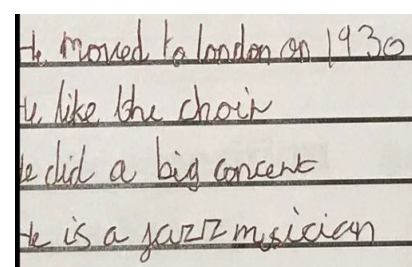 He moved to london on 1930
He like the choir
He did a big concert
He is a jazz musician